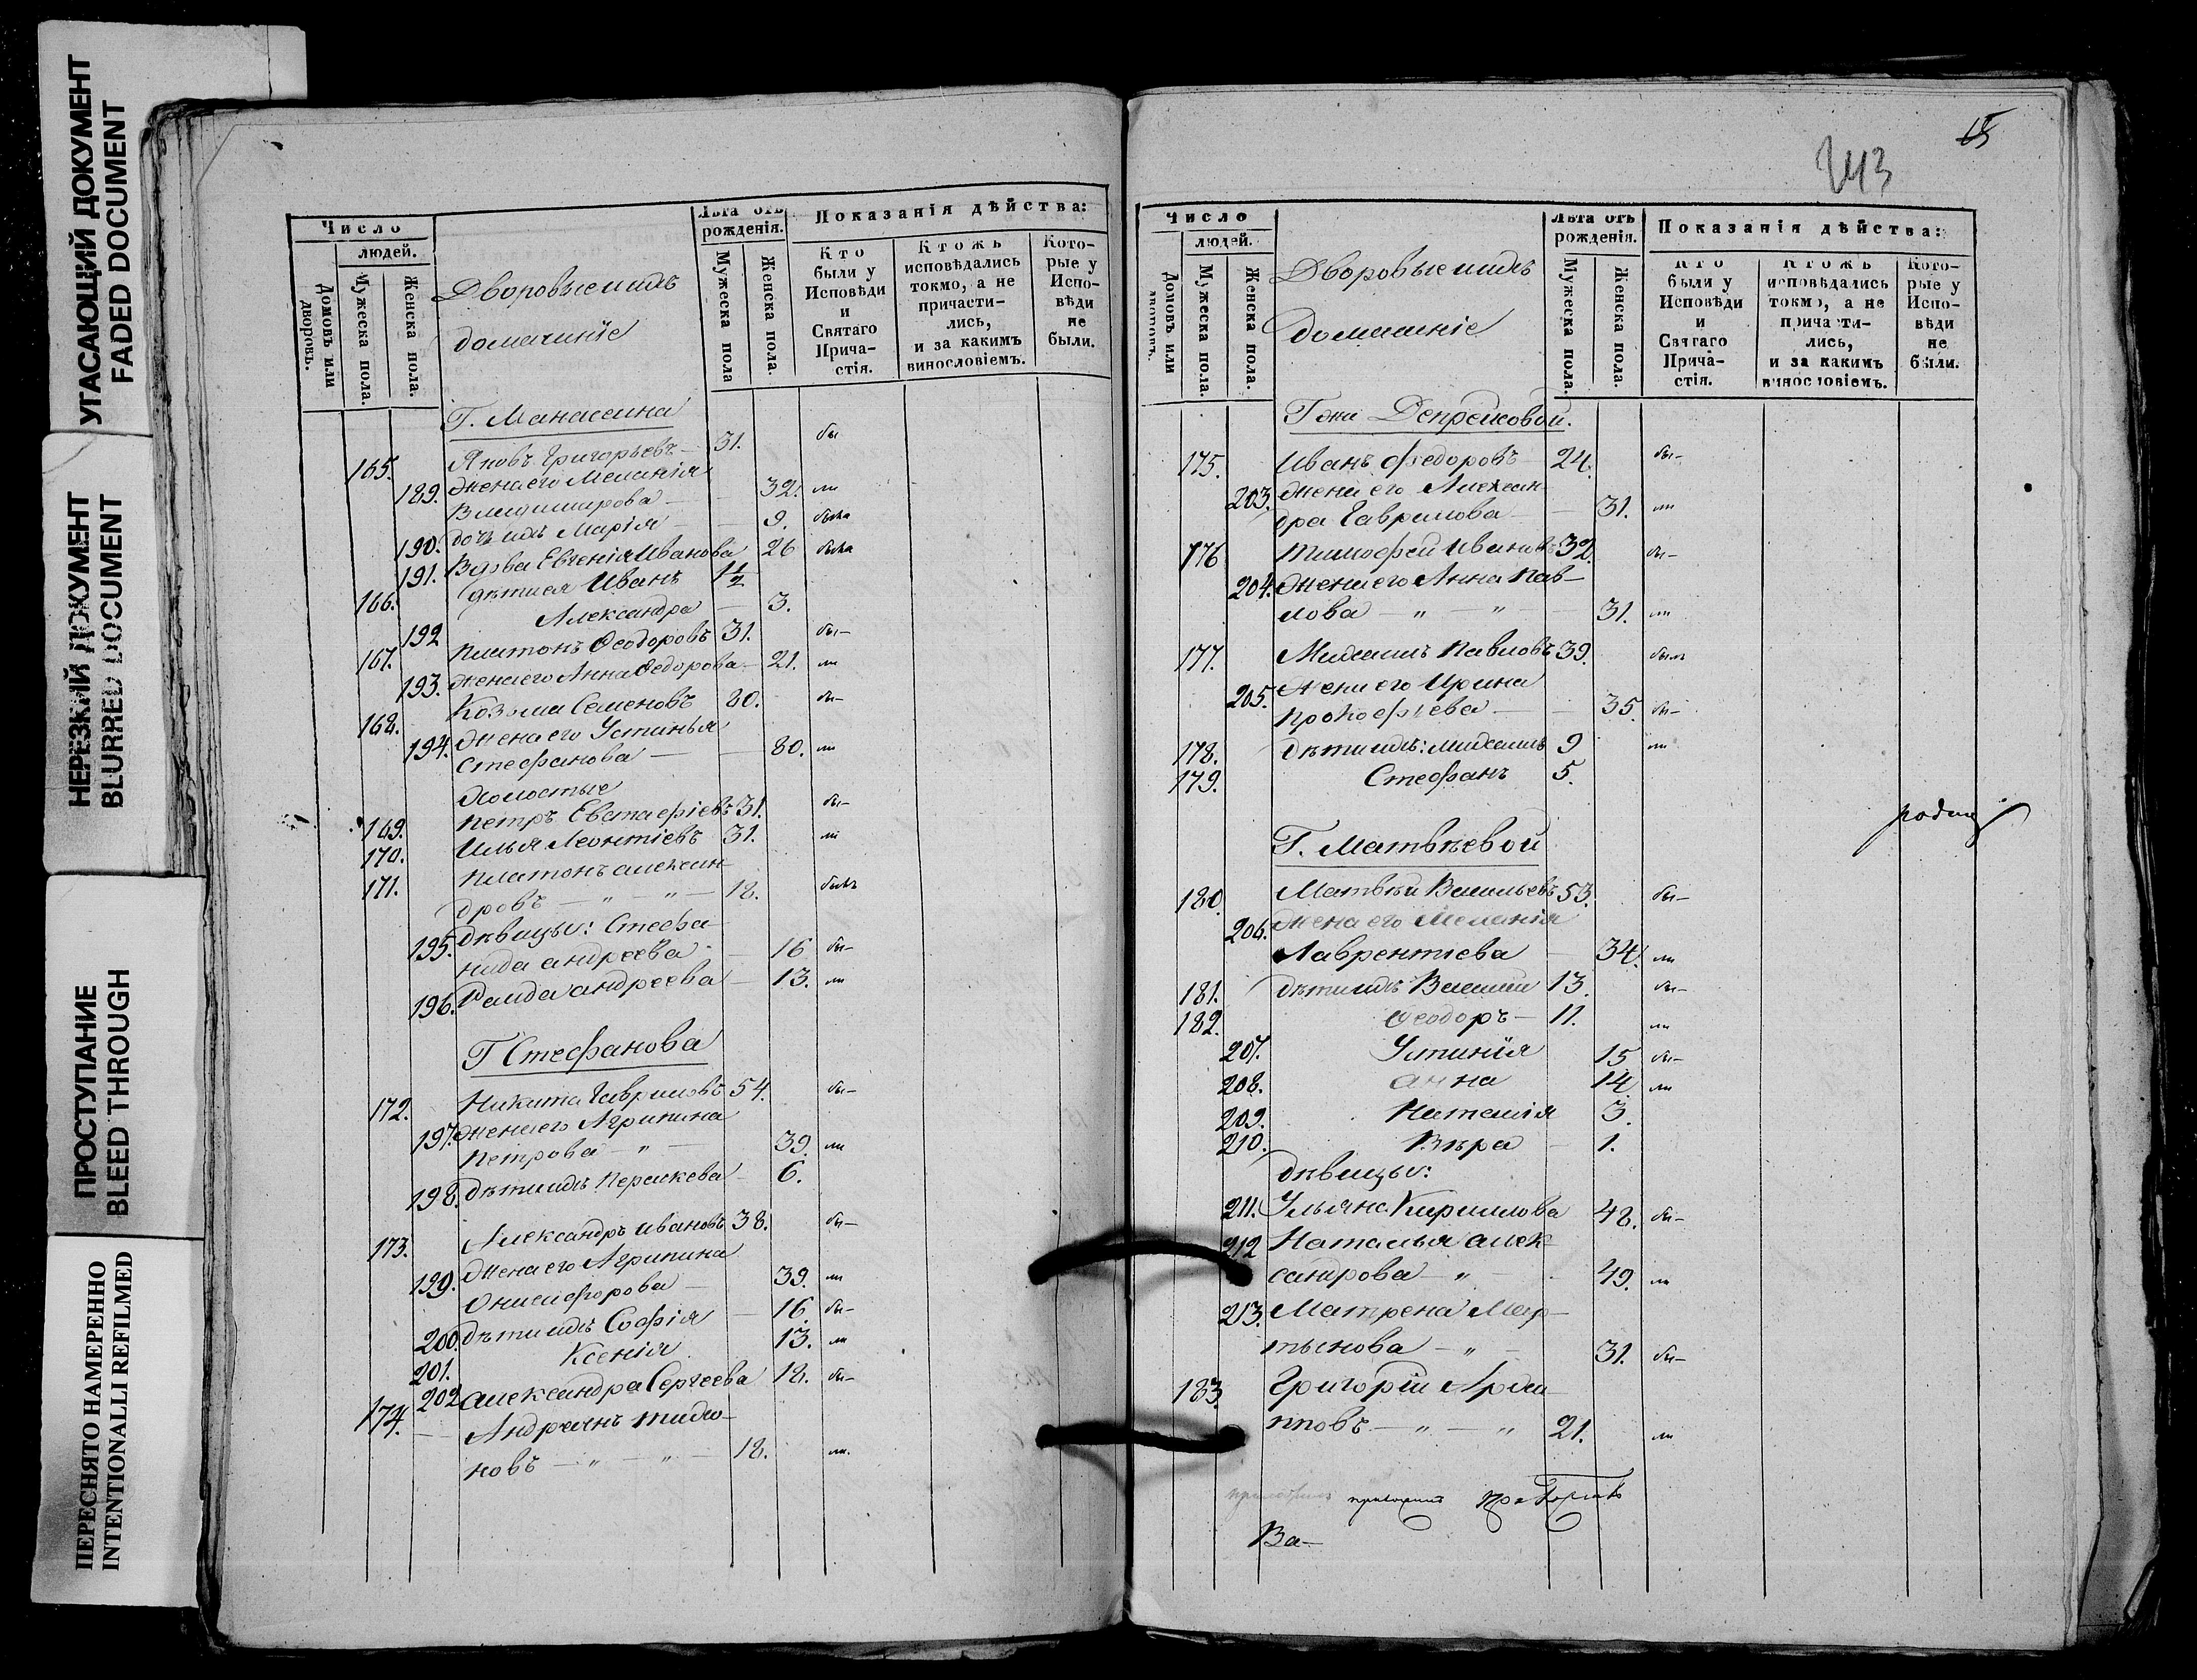 УГАСАЮЩИЙ ДОКУМЕНТ
FADED DOCUMENT
НЕРЕЗКИЙ ДОКУМЕНТ
BLURRED DOCUMENT
ПРОСТУПАНИЕ
BLEED THROUGH
ПЕРЕСНЯТО НАМЕРЕННО
INTENTIONALLI REFILMED
Число
людей.
Домовъ или дворовъ.
Мужеска пола.
Женска пола.
Дворовые ихъ
домашнiе
Лѣта отъ
рожденія.
Мужеска пола
Женска пола.
Показанія дѣйства:
Кто
были у
Исповѣди
и
Святаго
Прича-
стія.
Ктожъ
исповѣдались
токмо, а не
причасти-
лись,
и за какимъ
винословіемъ.
Кото-
рые у
Испо-
вѣди
не
были.
Г. Манасеина
165. Яковъ Григорьевъ 31. бы
189. жена его Меланія
Владимирова 32. ли
190. дочь ихъ Марія 9. была
191. Вдова Евгенія Иванова 26 была
166. дѣти ея Иванъ 1 1/2
192 Александра 3.
167. Платонъ Ѳеодоровъ 31. бы-
193. жена его Анна Ѳедорова 21. ли
168. Козьма Семеновъ 80. бы-
194. жена его Устинья
Стефанова 80. ли
Холостые
169. Петръ Евстафіевъ 31. бы-
170. Илья Леонтіевъ 31. ли
171. Платонъ Алексан-
дровъ 18. былъ
195. дѣвицы: Стефа-
нида Андреева 16 бы-
196. Раида Андреева 13. ли
Г Стефанова
172. Никита Гавриловъ 54. бы-
197. жена его Агрипина
Петрова 39. ли
198. дѣти ихъ Параскева 6.
173. Александръ Ивановъ 38. бы-
199. жена его Агрипина
Онисифорова 39. ли
200. дѣти ихъ Софія 16. бы-
201. Ксенія 13. ли
202 Александра Сергеева 18. бы-
174. Андреянъ Тихо-
новъ 18. ли.
15
243
Число
людей.
Домовъ или дворовъ.
Мужеска пола
Женска пола.
Дворовые ихъ
домашніе
Лѣта отъ
рожденія.
Мужеска пола.
Женска пола.
Показанія дѣйства:
Кто
были у
Исповѣди
и
Святаго
Прича-
стія.
Ктожъ
исповѣдались
токмо, а не
причасти-
лись,
и за какимъ
винословіемъ.
Кото-
рые у
Испо-
вѣди
не
были.
Гжи Депрейсовой.
175. Иванъ Федоровъ 24. бы-
203. жена его Алексан-
дра Гаврилова 31. ли
176 Тимофей Ивановъ 32. бы-
204. жена его Анна Пав-
лова 31. ли
177. Михаилъ Павловъ 39. былъ
205. жена его Ирина
Прокофьева 35. бы-
178. дѣти ихъ: Михаилъ 9 ли
179. Стефанъ 5.
Г. Матвѣевой
180. Матвѣй Васильевъ 53. бы-
206. жена его Меланія
Лаврентіева 34. ли
181. дѣти ихъ Василій 13. бы-
182. Ѳеодоръ 11. ли
207. Устинія 15 бы-
208. Анна 14 ли
209. Наталія 3.
210. Вѣра 1.
дѣвицы:
211. Ульяна Кирилова 48. бы-
212 Наталья Алек-
сандрова 49. ли
213. Матрена Мар-
тынова 31. бы-
183. Григорій Архи-
пповъ 21. ли
Ва-